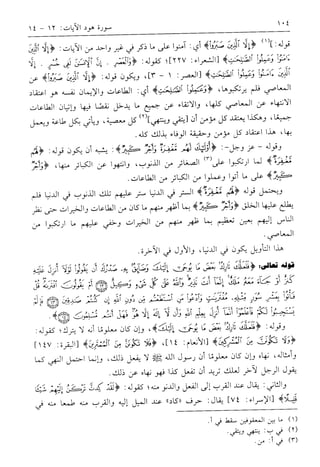 ١٠٤
سورة هود الآيات: ١٢ - ١٤
قوله:](١) ﴿إِلَّا الَّذِينَ ءَامَنُوا﴾ أي: آمنوا على ما ذكر في غير واحد من الآيات: ﴿إِلَّا الَّذِينَ
ءَامَنُوا وَعَمِلُوا الصَّالِحَاتِ﴾ [الشعراء: ٢٢٧]؛ كقوله: ﴿وَالْعَصْرِ . إِنَّ الْإِنسَانَ لَفِي خُسْرٍ . إِلَّا
الَّذِينَ ءَامَنُوا وَعَمِلُوا الصَّالِحَاتِ﴾ [العصر: ١ - ٣]، ويكون قوله: ﴿إِلَّا الَّذِينَ عن
المعاصي فلم يرتكبوها، ﴿وَعَمِلُوا الصَّالِحَاتِ﴾: الطاعات والإيمان نفسه هو اعتقاد
الانتهاء عن المعاصي كلها، والاتقاء عن جميع ما يدخل نقصا فيها وإتيان الطاعات
جميعًا، وهكذا يعتقد كل مؤمن أن [ينتهي ويتقي](٢) كل معصية، ويأتي بكل طاعة ويعمل
بها، هذا اعتقاد كل مؤمن وحقيقة الوفاء بذلك كله.
وقوله - عز وجل-: ﴿أُولَئِكَ لَهُم مَّغْفِرَةٌ وَأَجْرٌ كَبِيرٌ﴾: يشبه أن يكون قوله: ﴿لَهُم
مَّغْفِرَةٌ﴾ لما ارتكبوا على(٣) الصغائر من الذنوب، وانتهوا عن الكبائر منها، ﴿وَأَجْرٌ
كَبِيرٌ﴾ على ما أتوا وعملوا من الكبائر من الطاعات.
ويحتمل قوله ﴿لَهُم مَّغْفِرَةٌ﴾ الستر في الدنيا ستر عليهم تلك الذنوب في الدنيا فلم
يطلع عليها الخلق ﴿وَأَجْرٌ كَبِيرٌ﴾ بما أظهر منهم ما كان من الطاعات والخيرات حتى نظر
الناس إليهم بعين تعظيم بما ظهر منهم من الخيرات وخفي عليهم ما ارتكبوا من
المعاصي.
هذا التأويل يكون في الدنيا، والأول في الآخرة.
قوله تعالى: ﴿فَلَعَلَّكَ تَارِكٌ بَعْضَ مَا يُوحَى إِلَيْكَ وَضَائِقٌ بِهِ صَدْرُكَ أَن يَقُولُوا لَوْلَا أُنزِلَ عَلَيْهِ
كَنزٌ أَوْ جَاءَ مَعَهُ مَلَكٌ إِنَّمَا أَنتَ نَذِيرٌ وَاللَّهُ عَلَى كُلِّ شَيْءٍ وَكِيلٌ ۝ أَمْ يَقُولُونَ افْتَرَاهُ قُلْ
فَأْتُوا بِعَشْرِ سُوَرٍ مِّثْلِهِ مُفْتَرَيَاتٍ وَادْعُوا مَنِ اسْتَطَعْتُم مِّن دُونِ اللَّهِ إِن كُنتُمْ صَادِقِينَ ۝ فَإِلَّمْ
يَسْتَجِيبُوا لَكُمْ فَاعْلَمُوا أَنَّمَا أُنزِلَ بِعِلْمِ اللَّهِ وَأَن لَّا إِلَهَ إِلَّا هُوَ فَهَلْ أَنتُم مُّسْلِمُونَ ۝﴾.
وقوله: ﴿فَلَعَلَّكَ تَارِكٌ بَعْضَ مَا يُوحَى إِلَيْكَ﴾، وإن كان معلومًا أنه لا يترك؛ كقوله:
﴿وَلَا تَكُونَنَّ مِنَ الْمُشْرِكِينَ﴾ [الأنعام: ١٤]، ﴿فَلَا تَكُونَنَّ مِنَ الْمُمْتَرِينَ﴾ [البقرة: ١٤٧]
وأمثاله، نهاه وإن كان معلومًا أن رسول الله ﷺ لا يفعل ذلك، وإنما احتمل النهي كما
يقول الرجل لآخر لعلك تريد أن تفعل كذا فهو نهاه عن ذلك.
والثاني: يقال عند القرب إلى الفعل والدنو منه؛ كقوله: ﴿لَقَدْ كِدتَّ تَرْكَنُ إِلَيْهِمْ شَيْئًا
قَلِيلًا﴾ [الإسراء: ٧٤] يقال: حرف «كاد» عند الميل إليه والقرب منه طمعا منه في
(١) ما بين المعقوفين سقط في أ.
(٢) في ب: ينتهي ويتقي.
(٣) في أ: من.